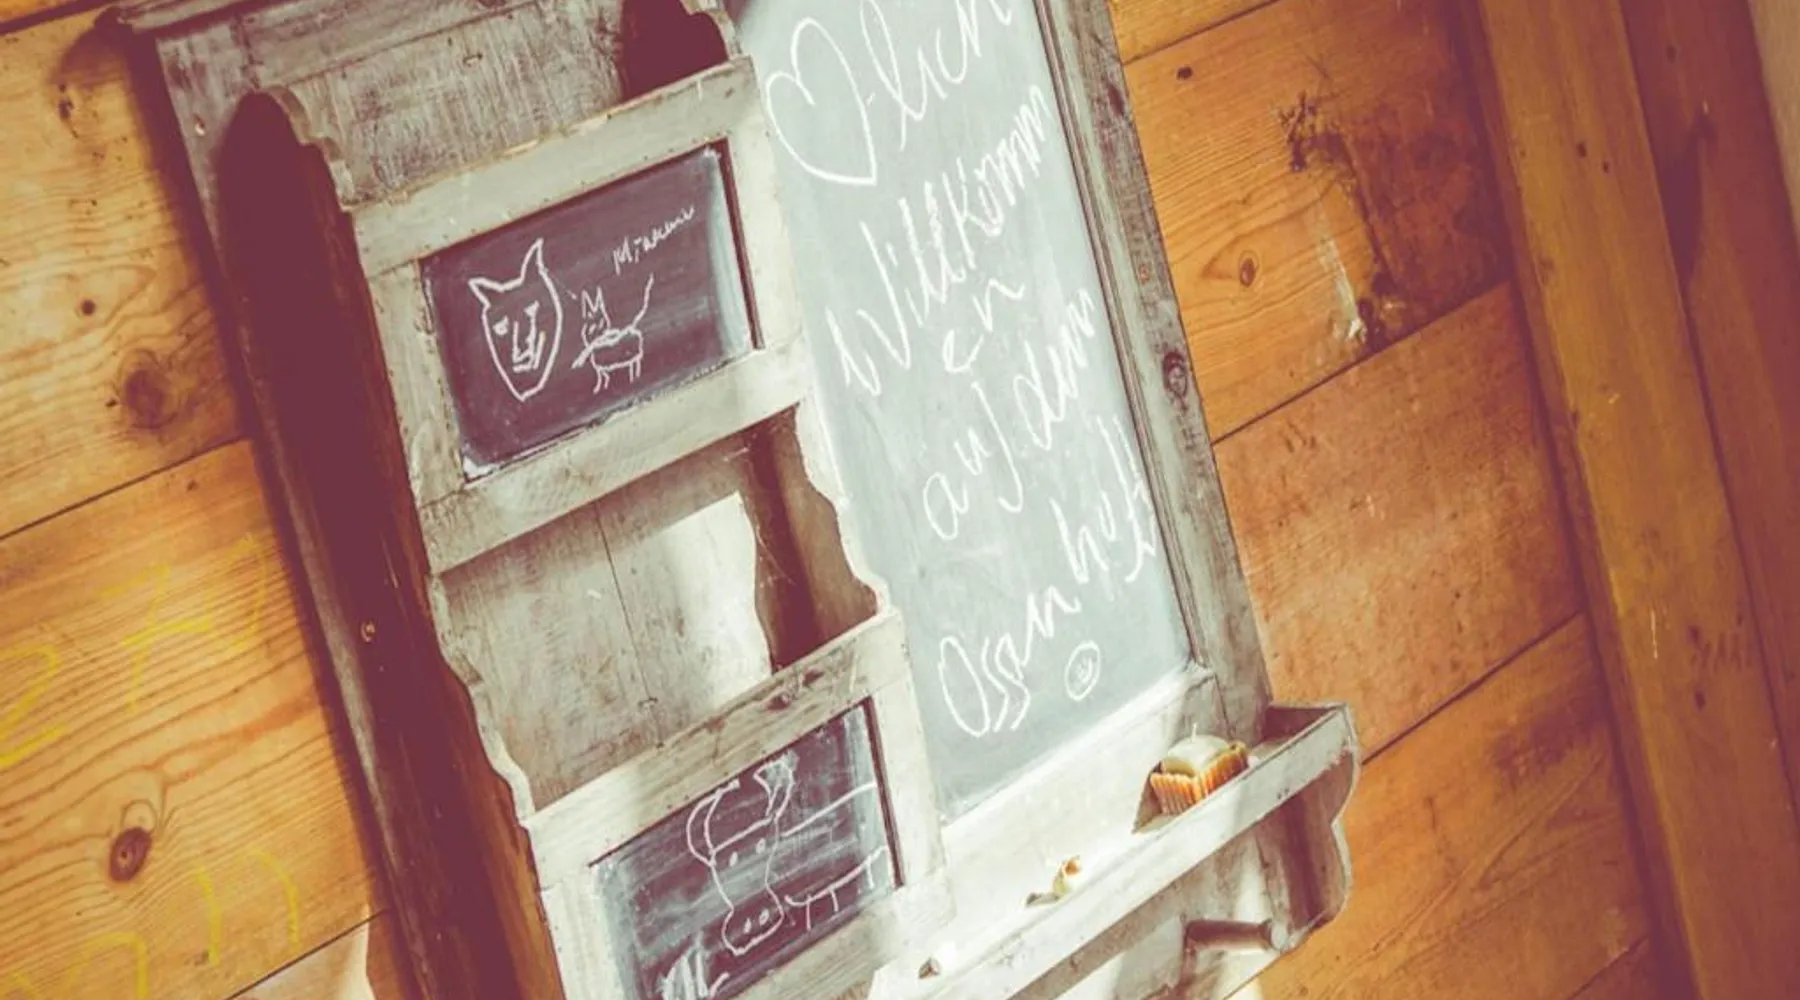 ♡-lich
Willkomm
en
auf dem
Ossenhoff
Mjiauuuu